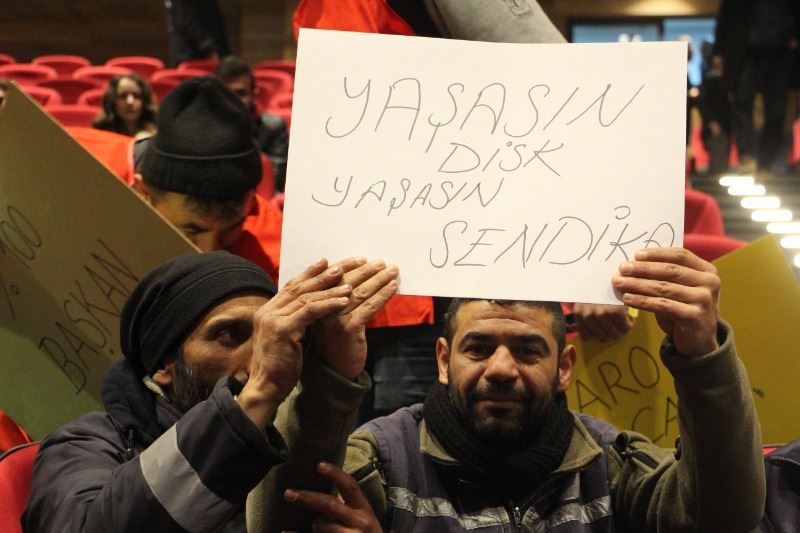 YAŞASIN
DİSK
YAŞASIN
SENDİKA
% 100
BAŞKAN
ARO